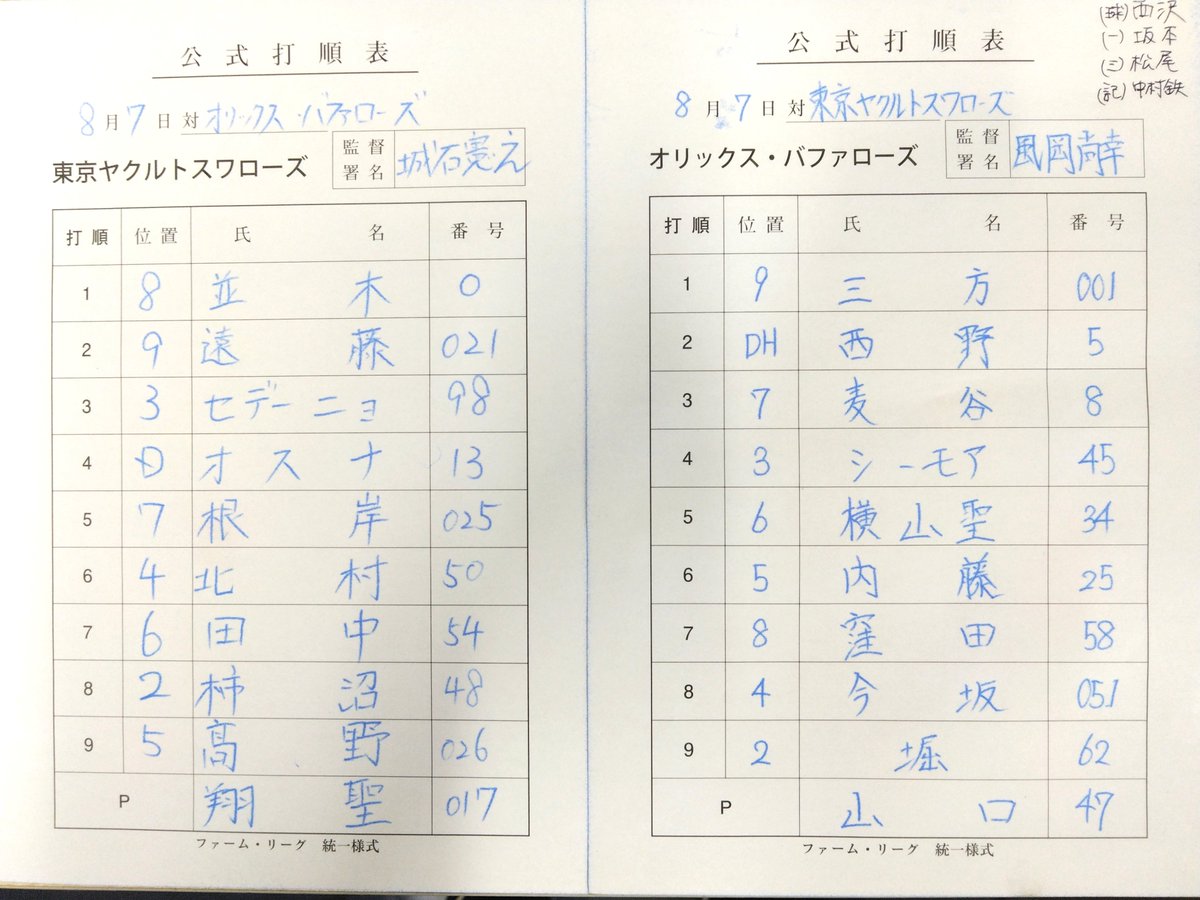 公式打順表
8月7日対オリックス・バファローズ
東京ヤクルトスワローズ 監督署名 城石憲之
打順 位置 氏名 番号
1 8 並木 0
2 9 遠藤 021
3 3 セデーニョ 98
4 D オスナ 13
5 7 根岸 025
6 4 北村 50
7 6 田中 54
8 2 柿沼 48
9 5 髙野 026
P 翔聖 017
ファーム・リーグ 統一様式
(球)西沢
(一)坂本
(三)松尾
(記)中村鉄
公式打順表
8月7日対東京ヤクルトスワローズ
オリックス・バファローズ 監督署名 風岡尚幸
打順 位置 氏名 番号
1 9 三方 001
2 DH 西野 5
3 7 麦谷 8
4 3 シーモア 45
5 6 横山聖 34
6 5 内藤 25
7 8 窪田 58
8 4 今坂 051
9 2 堀 62
P 山口 47
ファーム・リーグ 統一様式